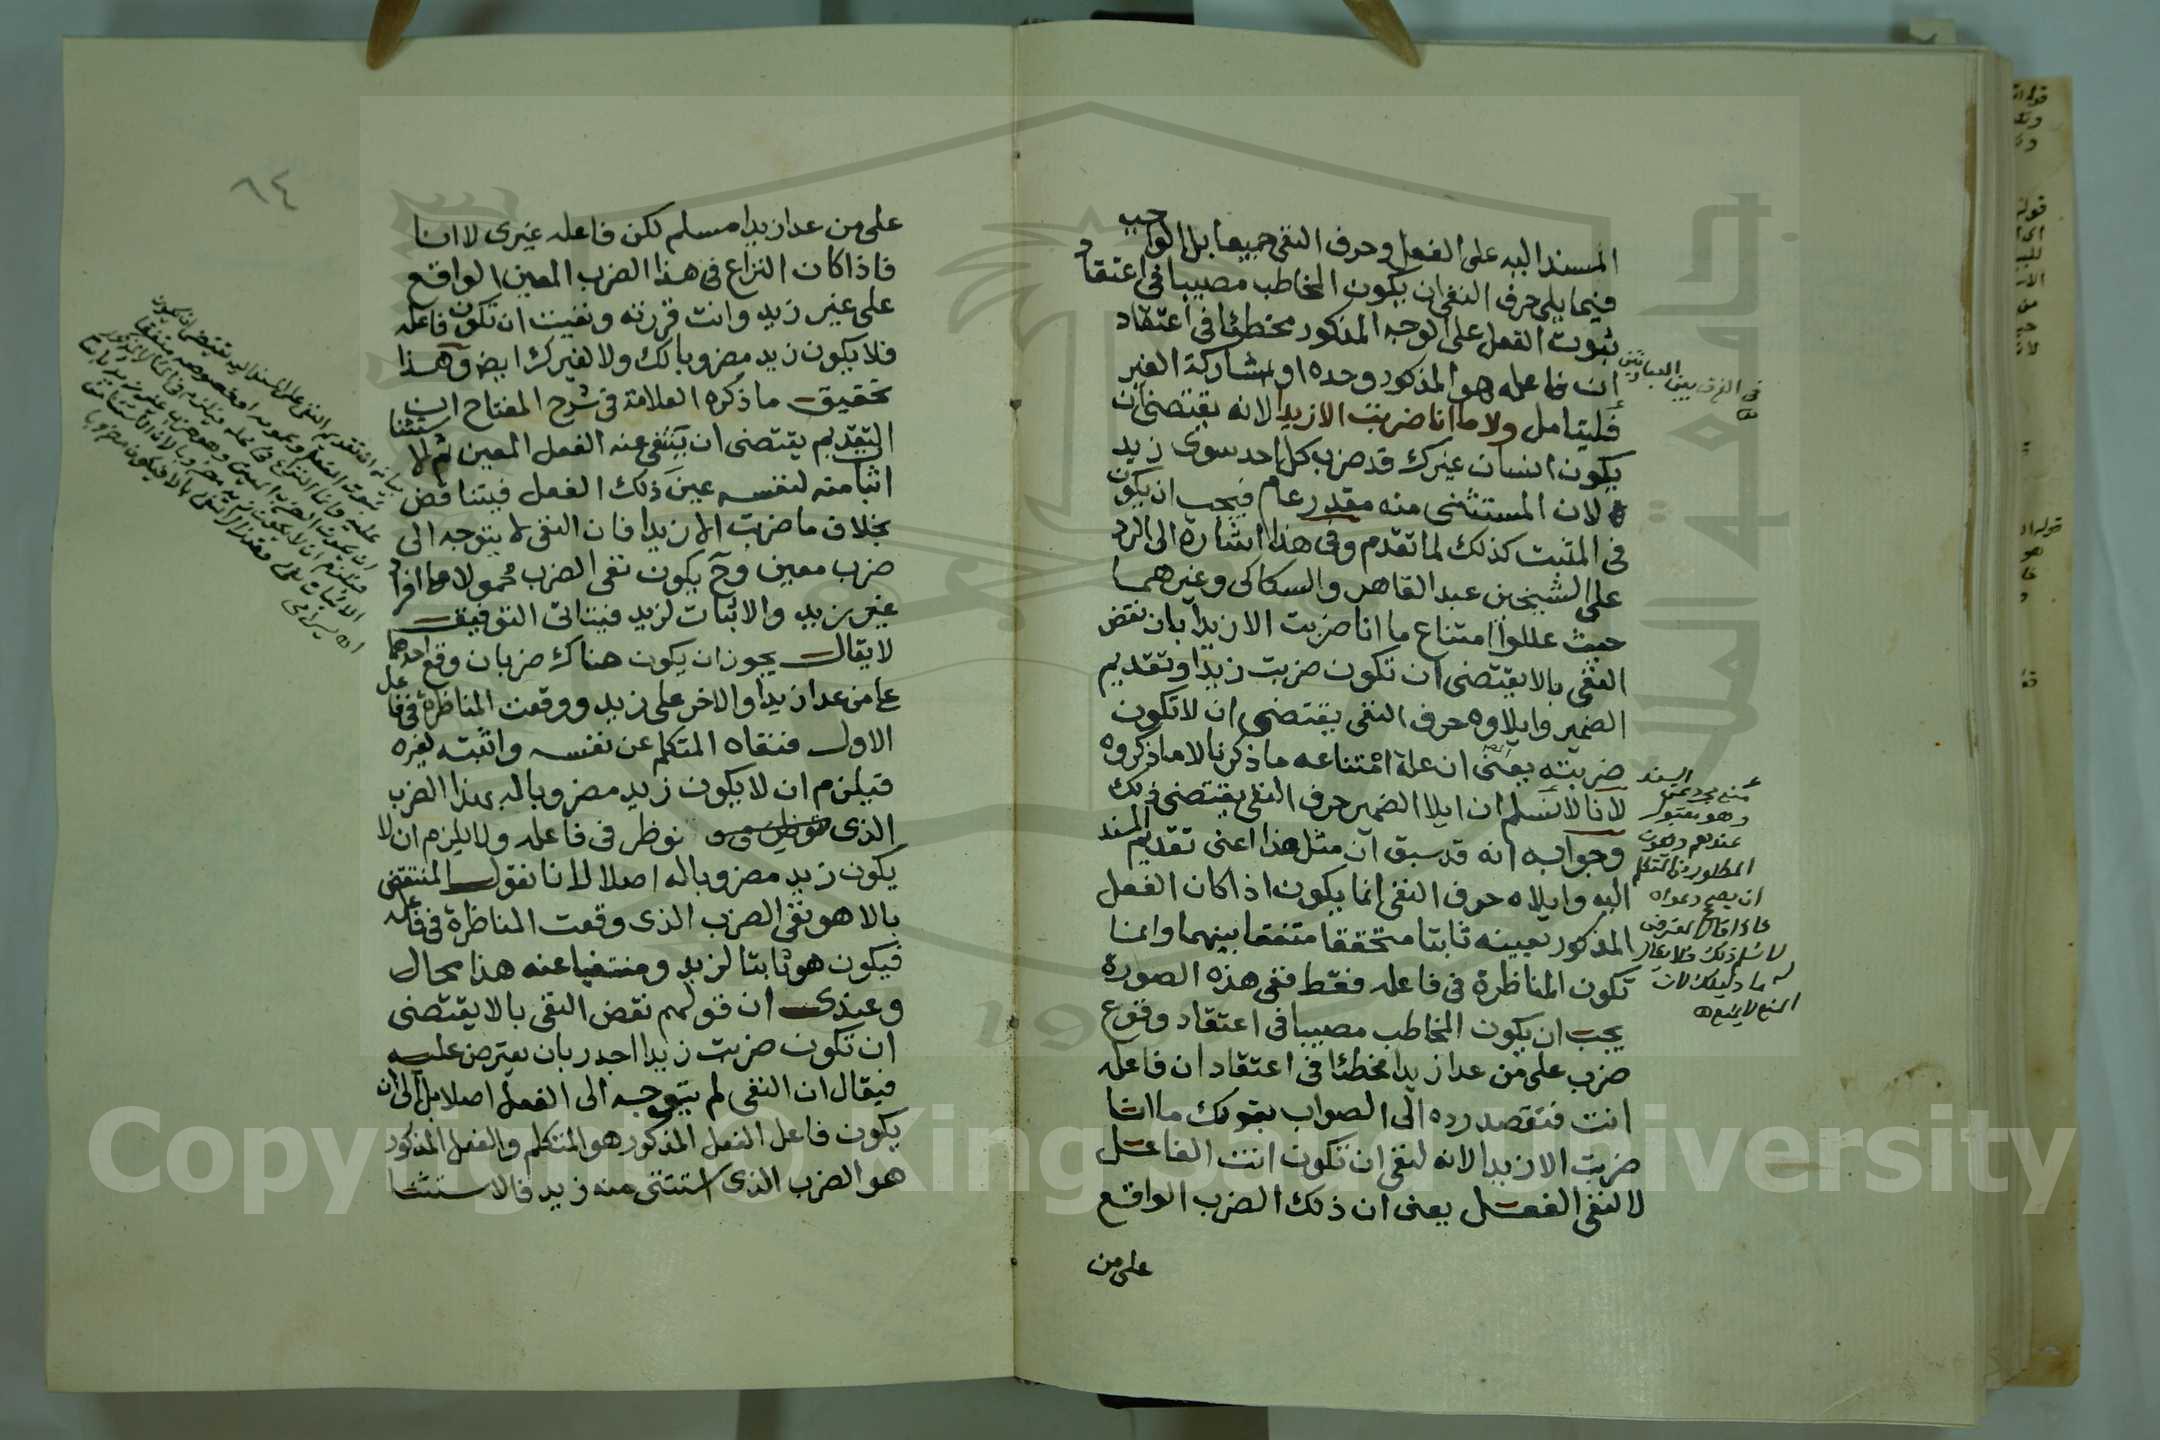 المسند اليه على الفعل وحرف النفى جميعا بل الواجب
فيما يلى حرف النفى ان يكون المخاطب مصيبا فى اعتقاد
ثبوت الفعل على الوجه المذكور مخطئا فى اعتقاد
ان فاعله هو المذكور وحده او بمشاركة الغير
فليتامل ولا ما انا ضربت الا زيدا لانه يقتضى ان
يكون انسان غيرك قد ضرب كل احد سوى زيد
لان المستثنى منه مقدر عام فيجب ان يكون
فى المثبت كذلك لما تقدم وفى هذا اشارة الى الرد
على الشيخين عبد القاهر والسكاكى وغيرهما
حيث عللوا امتناع ما انا ضربت الا زيدا بان نقض
النفى بالا يقتضى ان تكون ضربت زيدا وتقديم
الضمير وايلاوه حرف النفى يقتضى ان لا تكون
ضربته يعنى ان علة امتناعه ما ذكرنا لا ما ذكروه
لانا لا نسلم ان ايلا الضمير حرف النفى يقتضى ذلك
وجوابه انه قد سبق ان مثل هذا اعنى تقديم المسند
اليه وايلاه حرف النفى انما يكون اذا كان الفعل
المذكور بعينه ثابتا متحققا متفقا بينهما وانما
تكون المناظرة فى فاعله فقط ففى هذه الصورة
يجب ان يكون المخاطب مصيبا فى اعتقاد وقوع
ضرب على من عدا زيدا مخطئا فى اعتقاد ان فاعله
انت فتقصد رده الى الصواب بقولك ما انا
ضربت الا زيدا لانه لنفى ان تكون انت الفاعل
لا لنفى الفعل يعنى ان ذلك الضرب الواقع
على من
فى الفرق بين العبارتين
منع مجرد عن السند
وهو مقبول
عندهم
ان يصح دعواه
لا نسلم ذلك فلا يقال
له ما دليلك لان
المنع لا يمنع
٨٤
على من عدا زيدا مسلم لكن فاعله غيرى لا انا
فاذا كان النزاع فى هذا الضرب المعين الواقع
على غير زيد وانت قررته ونفيت ان تكون فاعله
فلا يكون زيد مضروبا لك ولا لغيرك ايض وهذا
تحقيق ما ذكره العلامة فى شرح المفتاح ان
التقديم يقتضى ان ينتفى عنه الفعل المعين ثم الاستثنا
اثبا منه لنفسه عين ذلك الفعل فيتناقض
بخلاف ما ضربت الا زيدا فان النفى لا يتوجه الى
ضرب معين وح يكون نفى الضرب محمولا على افراد
غير زيد والاثبات لزيد فيتاتى التوفيق
لا يقال يجوز ان يكون هناك ضربان وقع احدهما
على من عدا زيدا والاخر على زيد ووقعت المناظرة فى فاعل
الاول فنفاه المتكلم عن نفسه واثبته لغيره
فيلزم ان لا يكون زيد مضروبا له بهذا الضرب
الذى نوظر فى فاعله ولا يلزم ان لا
يكون زيد مضروبا له اصلا لانا نقول المنتقض
بالا هو نفى الضرب الذى وقعت المناظرة فى فاعله
فيكون هو ثابتا لزيد ومنتفيا عنه هذا محال
وعندى ان قولهم نقض النفى بالا يقتضى
ان تكون ضربت زيدا اجدر بان يعترض عليه
فيقال ان النفى لم يتوجه الى الفعل اصلا بل الى ان
يكون فاعل الفعل المذكور هو المتكلم والفعل المذكور
هو الضرب الذى استثنى منه زيد فالاستثنا
Copyright © King Saud University
جامعة الملك